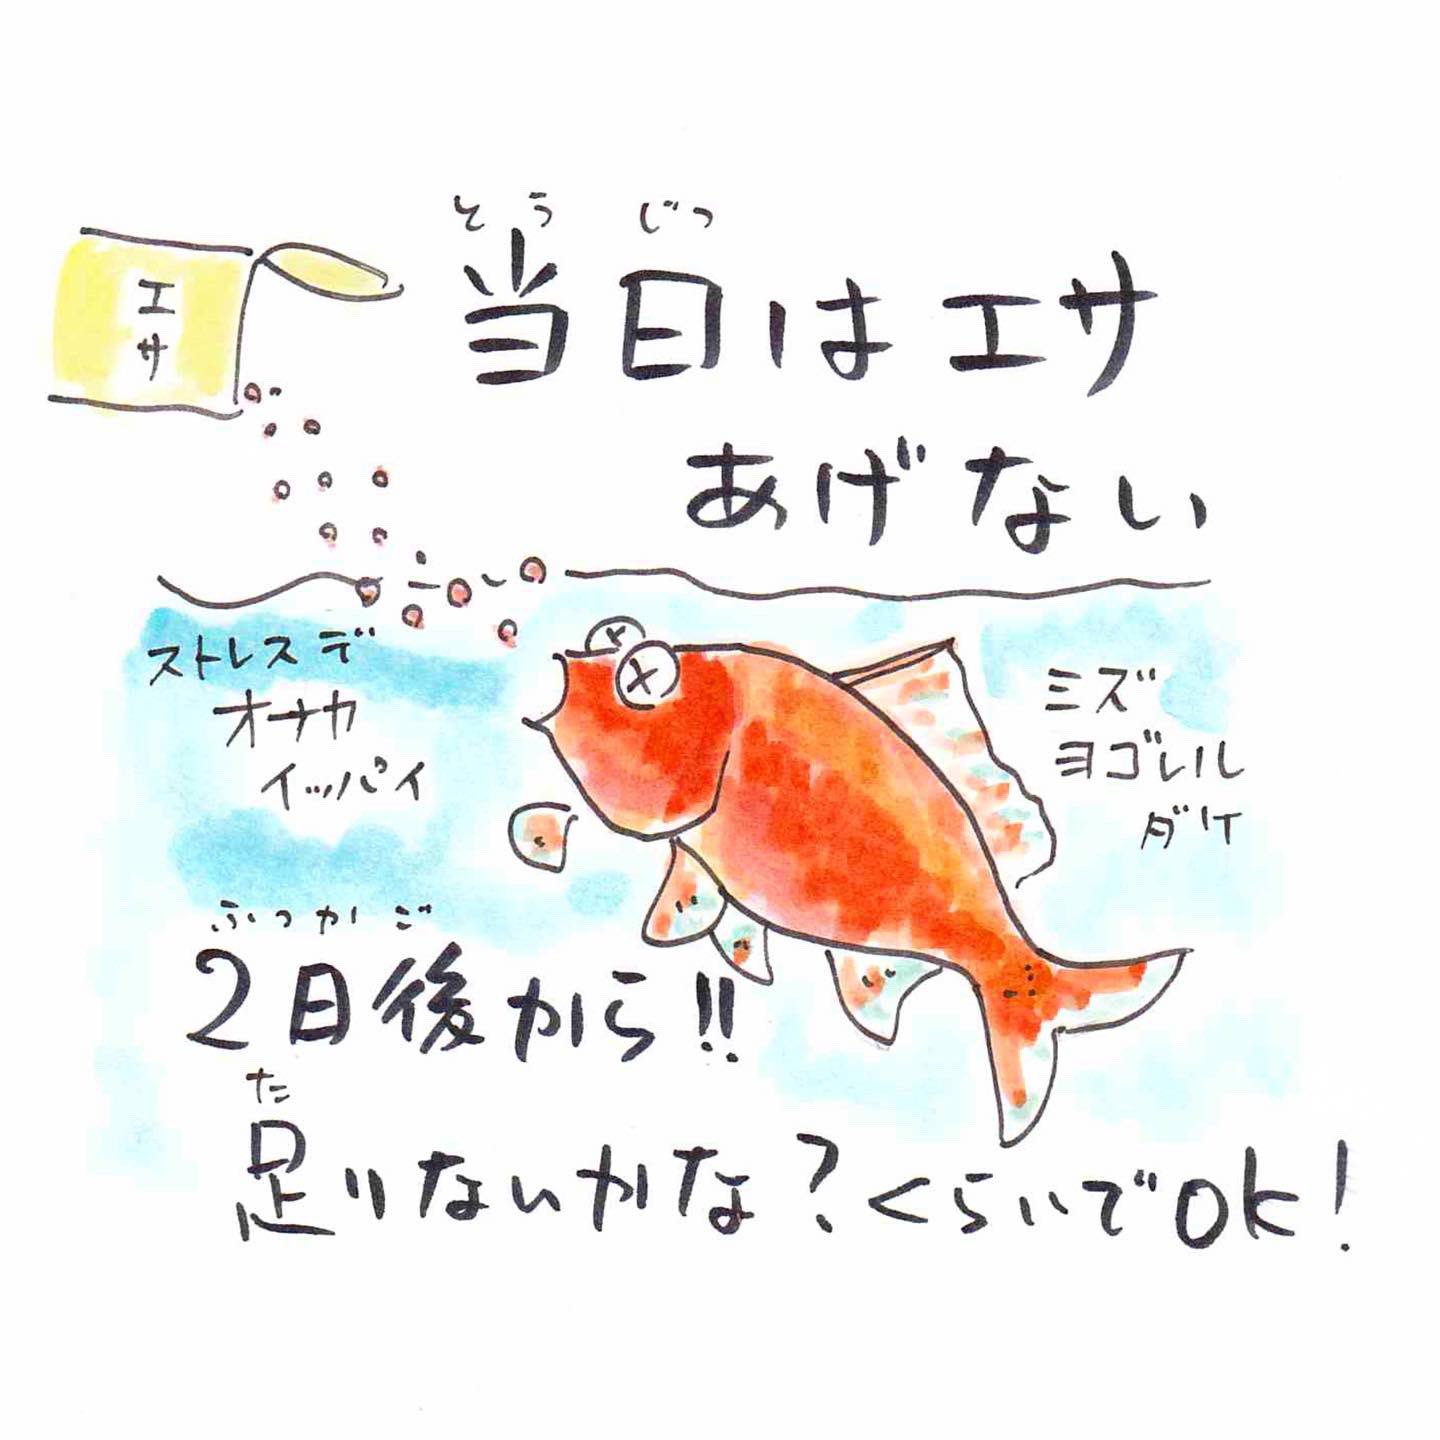 とうじつ
エサ
当日はエサ
あげない
ストレスデ
オナカ
イッパイ
ミズ
ヨゴレル
ダケ
ふつかご
2日後から!!
た
足りないかな?くらいでOK!